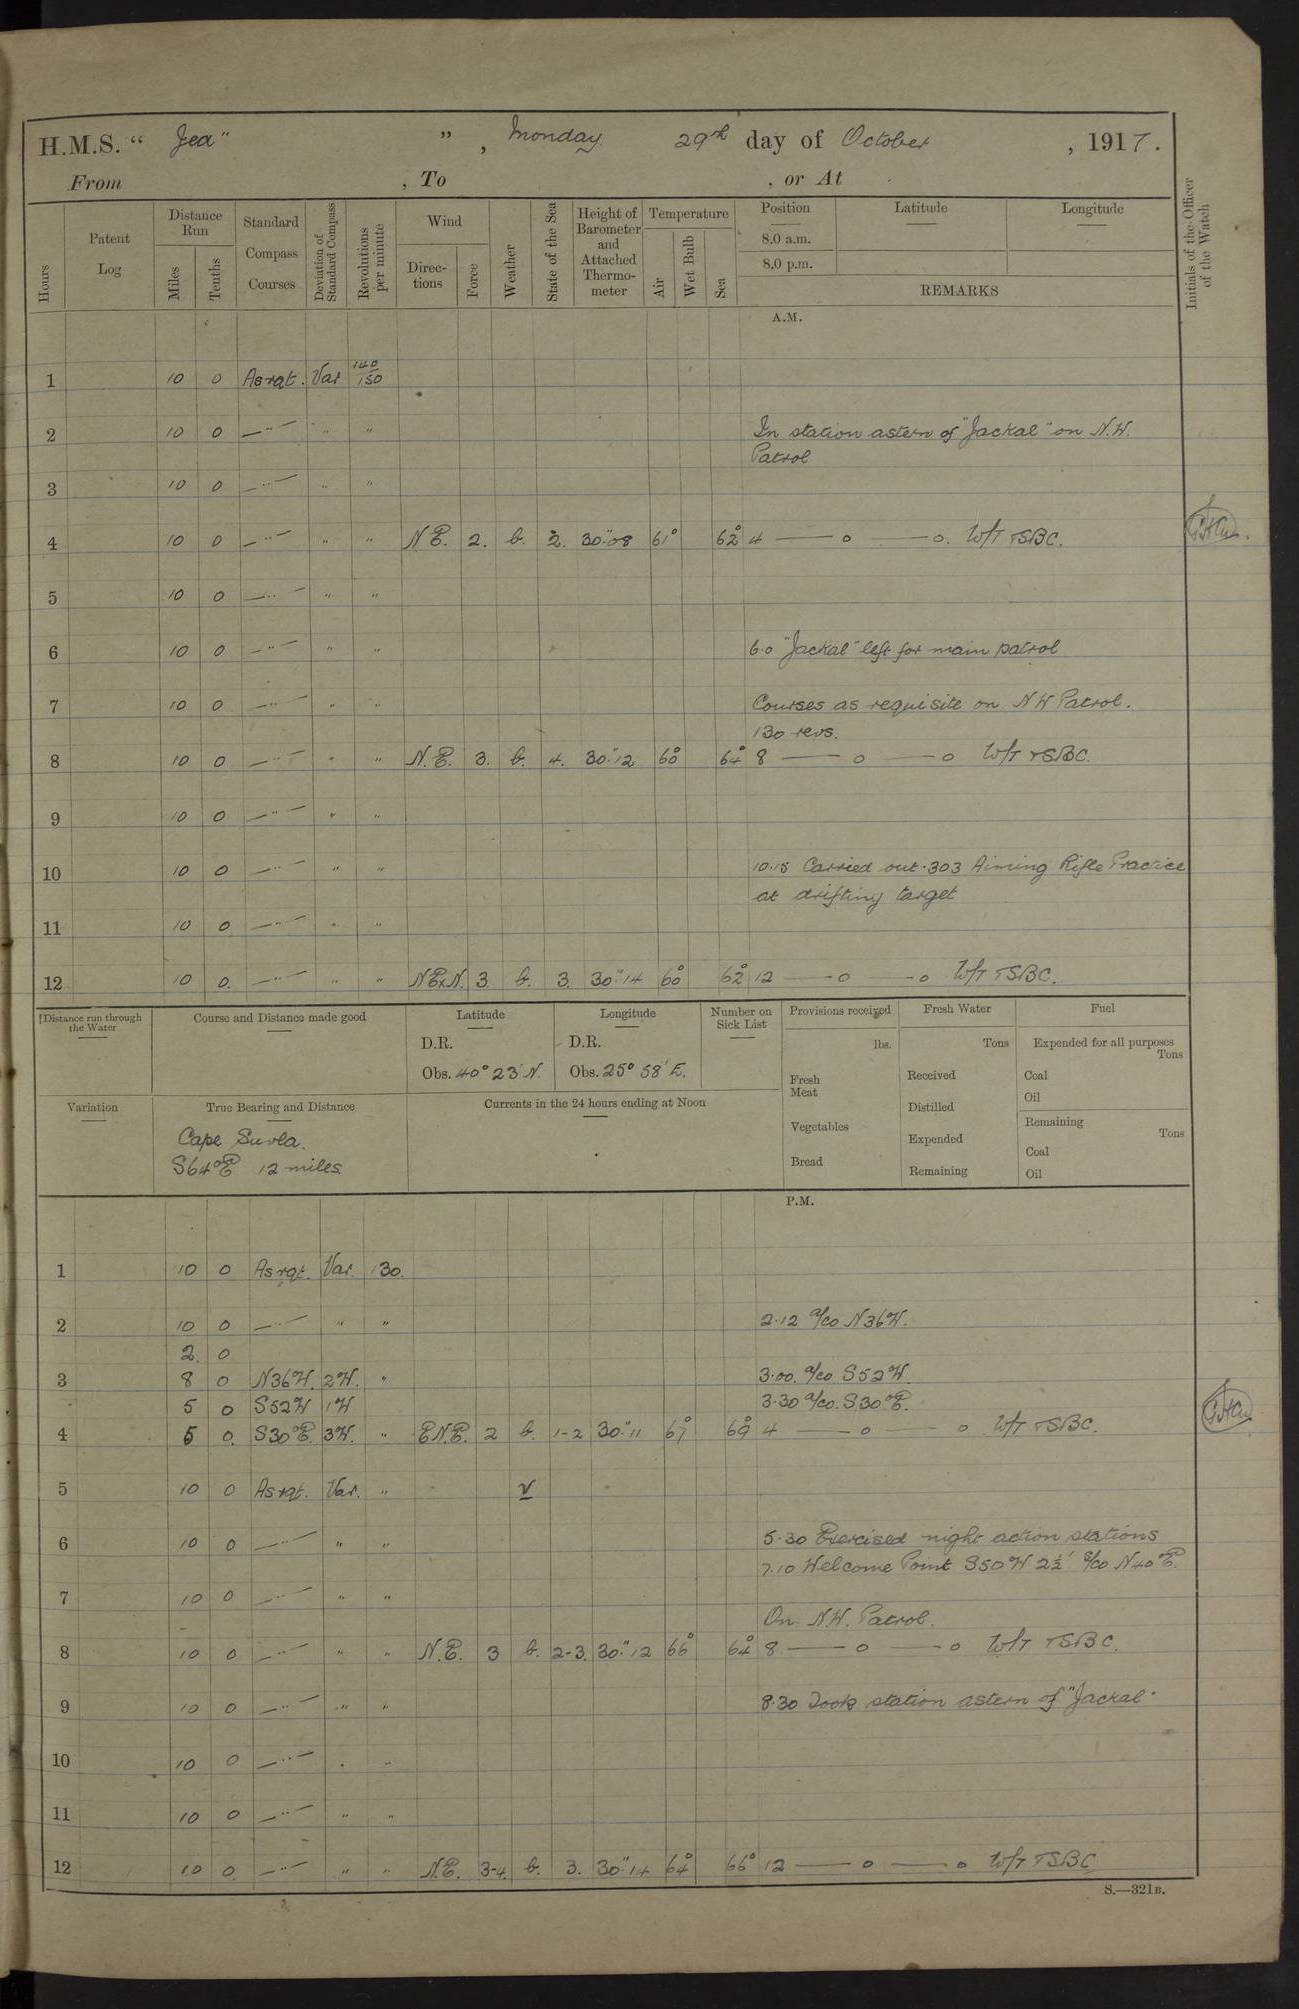 H.M.S. “ Jed” ” , Monday 29th day of October , 1917.
From , To , or At
Hours
Patent Log
Distance Run
Miles
Tenths
Standard Compass Courses
Deviation of Standard Compass
Revolutions per minute
Wind
Directions
Force
Weather
State of the Sea
Height of Barometer and Attached Thermometer
Temperature
Air
Wet Bulb
Sea
Position
8.0 a.m.
8.0 p.m.
Latitude
Longitude
REMARKS
Initials of the Officer of the Watch
A.M.
1 10 0 As rqt. Var 140/150
2 10 0 —"— " " In station astern of "Jackal" on N.W.
Patrol
3 10 0 —"— " "
4 10 0 —"— " " N E. 2. b. 2. 30".08 61° 62° 4 —— o —— o. W/T TSBC.
5 10 0 —"— " "
6 10 0 —"— " " 6.0 "Jackal" left for main patrol
7 10 0 —"— " " Courses as requisite on N W Patrol.
130 revs.
8 10 0 —"— " " N.E. 3. b. 4. 30".12 60° 64° 8 —— o —— o W/T TSBC.
9 10 0 —"— " "
10 10 0 —"— " " 10.15 Carried out .303 Aiming Rifle Practice
at drifting target
11 10 0 —"— " "
12 10 0. —"— " " NExN. 3. b. 3. 30".14 60° 62° 12 —— o —— o W/T TSBC.
Distance run through the Water
Course and Distance made good
Latitude
D.R.
Obs. 40° 23' N.
Longitude
D.R.
Obs. 25° 58' E.
Number on Sick List
Provisions received
lbs.
Fresh Meat
Vegetables
Bread
Fresh Water
Tons
Received
Distilled
Expended
Remaining
Fuel
Expended for all purposes
Tons
Coal
Oil
Remaining
Tons
Coal
Oil
Variation
True Bearing and Distance
Cape Suvla.
S64°E 12 miles
Currents in the 24 hours ending at Noon
P.M.
1 10 0 As rqt. Var. 130.
2 10 0 —"— " " 2.12 a/co N36W.
2. 0
3 8 0 N36W. 2W. " 3.00. a/co S52W.
5 0 S52W 1W 3.30 a/co. S30°E.
4 5 0. S30°E. 3W. " ENE. 2 b. 1-2 30".11 67° 69° 4 —— o —— o W/T TSBC.
5 10 0 As rqt. Var. " v
6 10 0 —"— " " 5.30 Exercised night action stations
7.10 Welcome Point S50W 2½' a/co N40°E.
7 10 0 —"— " "
On N.W. Patrol.
8 10 0 —"— " " N.E. 3 b. 2-3. 30".12 66° 64° 8 —— o —— o W/T TSBC.
9 10 0 —"— " " 8.30 Took station astern of "Jackal"
10 10 0 —"— " "
11 10 0 —"— " "
12 10 0. —"— " " N.E. 3-4. b. 3. 30".14 64° 66° 12 —— o —— o W/T TSBC
S.—321B.